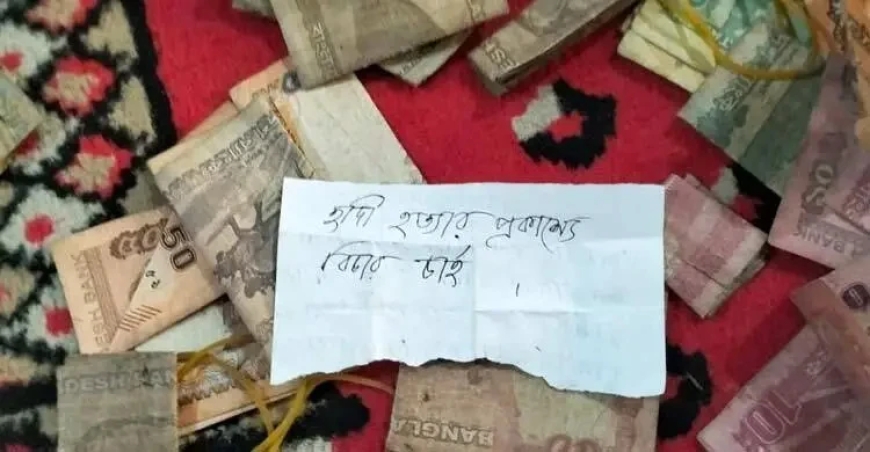 হাদী হত্যার প্রকাশ্যে
বিচার চাই ।
50
DESH BANK
DESH BAN
BANGLA
10
BANK